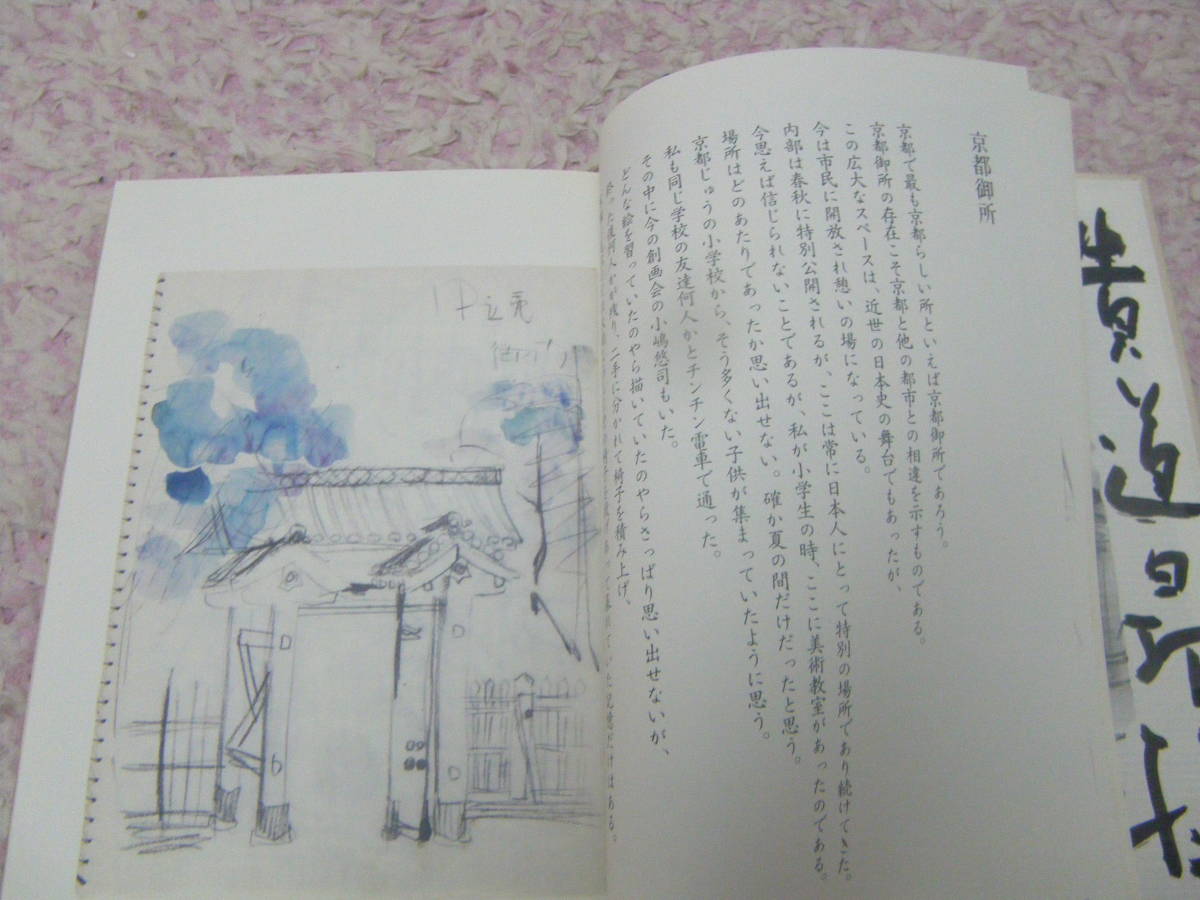 京都御所
京都で最も京都らしい所といえば京都御所であろう。
京都御所の存在こそ京都と他の都市との相違を示すものである。
この広大なスペースは、近世の日本史の舞台でもあったが、
今は市民に開放され憩いの場になっている。
内部は春秋に特別公開されるが、ここは常に日本人にとって特別の場所であり続けてきた。
今思えば信じられないことであるが、私が小学生の時、ここに美術教室があったのである。
場所はどのあたりであったか思い出せない。確か夏の間だけだったと思う。
京都じゅうの小学校から、そう多くない子供が集まっていたように思う。
私も同じ学校の友達何人かとチンチン電車で通った。
その中に今の創画会の小嶋悠司もいた。
どんな絵を習っていたのやら描いていたのやらさっぱり思い出せないが、
終った後何人かが残り、二手に分かれて椅子を積み上げ、
って暴れていた記憶だけはある。
中立売
道
日